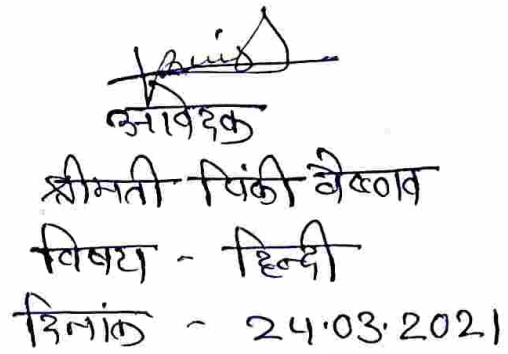 आवेदक
श्रीमती पिंकी वैष्णव
विषय - हिन्दी
दिनांक - 24.03.2021